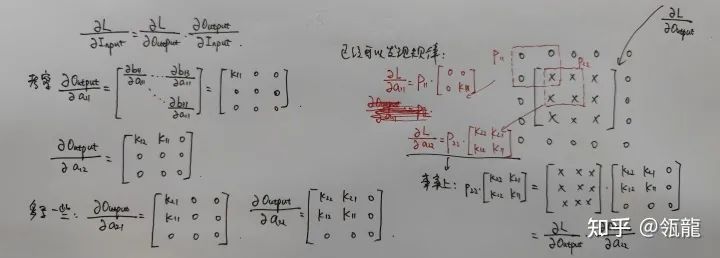 ∂L/∂Input = ∂L/∂Output · ∂Output/∂Input.
考察 ∂Output/∂a₁₁ = [∂b₁₁/∂a₁₁ ⋯ ∂b₁₃/∂a₁₁ ⋱ ∂b₃₃/∂a₁₁] = [K₁₁ 0 0; 0 0 0; 0 0 0]
∂Output/∂a₁₂ = [K₁₂ K₁₁ 0; 0 0 0; 0 0 0]
多写一些: ∂Output/∂a₂₁ = [K₂₁ 0 0; K₁₁ 0 0; 0 0 0] ∂Output/∂a₂₂ = [K₂₂ K₂₁ 0; K₁₂ K₁₁ 0; 0 0 0]
已经可以发现规律:
∂L/∂a₁₁ = P₁₁ · [0 0; 0 K₁₁]
∂L/∂a₂₂ = P₂₂ · [K₂₂ K₂₁; K₁₂ K₁₁]
∂L/∂Output
P₁₁ P₂₂
0 0 0 0 0
0 x x x 0
0 x x x 0
0 x x x 0
0 0 0 0 0
事实上: P₂₂ · [K₂₂ K₂₁; K₁₂ K₁₁] = [x x x; x x x; x x x] · [K₂₂ K₂₁ 0; K₁₂ K₁₁ 0; 0 0 0]
= ∂L/∂Output ·
知乎 @瓴龍